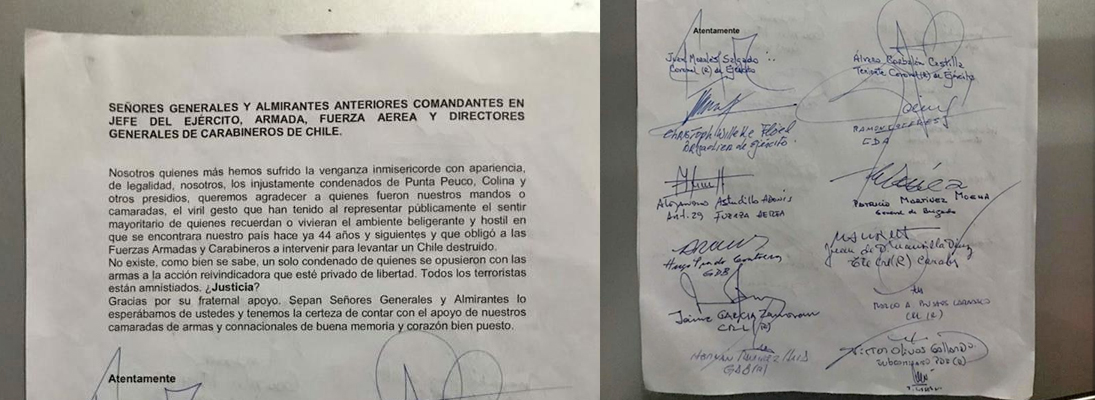 SEÑORES GENERALES Y ALMIRANTES ANTERIORES COMANDANTES EN
JEFE DEL EJÉRCITO, ARMADA, FUERZA AEREA Y DIRECTORES
GENERALES DE CARABINEROS DE CHILE.
Nosotros quienes más hemos sufrido la venganza inmisericorde con apariencia,
de legalidad, nosotros, los injustamente condenados de Punta Peuco, Colina y
otros presidios, queremos agradecer a quienes fueron nuestros mandos o
camaradas, el viril gesto que han tenido al representar públicamente el sentir
mayoritario de quienes recuerdan o vivieran el ambiente beligerante y hostil en
que se encontrara nuestro país hace ya 44 años y siguientes y que obligó a las
Fuerzas Armadas y Carabineros a intervenir para levantar un Chile destruido.
No existe, como bien se sabe, un solo condenado de quienes se opusieron con las
armas a la acción reivindicadora que esté privado de libertad. Todos los terroristas
están amnistiados. ¿Justicia?
Gracias por su fraternal apoyo. Sepan Señores Generales y Almirantes lo
esperábamos de ustedes y tenemos la certeza de contar con el apoyo de nuestros
camaradas de armas y connacionales de buena memoria y corazón bien puesto.
Atentamente
Atentamente
Juan Morales Salgado
Coronel (R) de Ejército
Álvaro Corbalán Castilla
Teniente Coronel (R) de Ejército
Christoph Willeke Flöel
Brigadier de Ejército
CDA
Alejandro Astudillo Adonis
Ant. 29 FUERZA AEREA
Patricio Martinez Moena
General de Brigada
Hugo Prado Contreras
GDB
(R) Carab
Jaime García Zamorano
CRL (R)
(R)
Hernán Ramírez
GDB (R)
Victor Olivos Gallardo
(R)